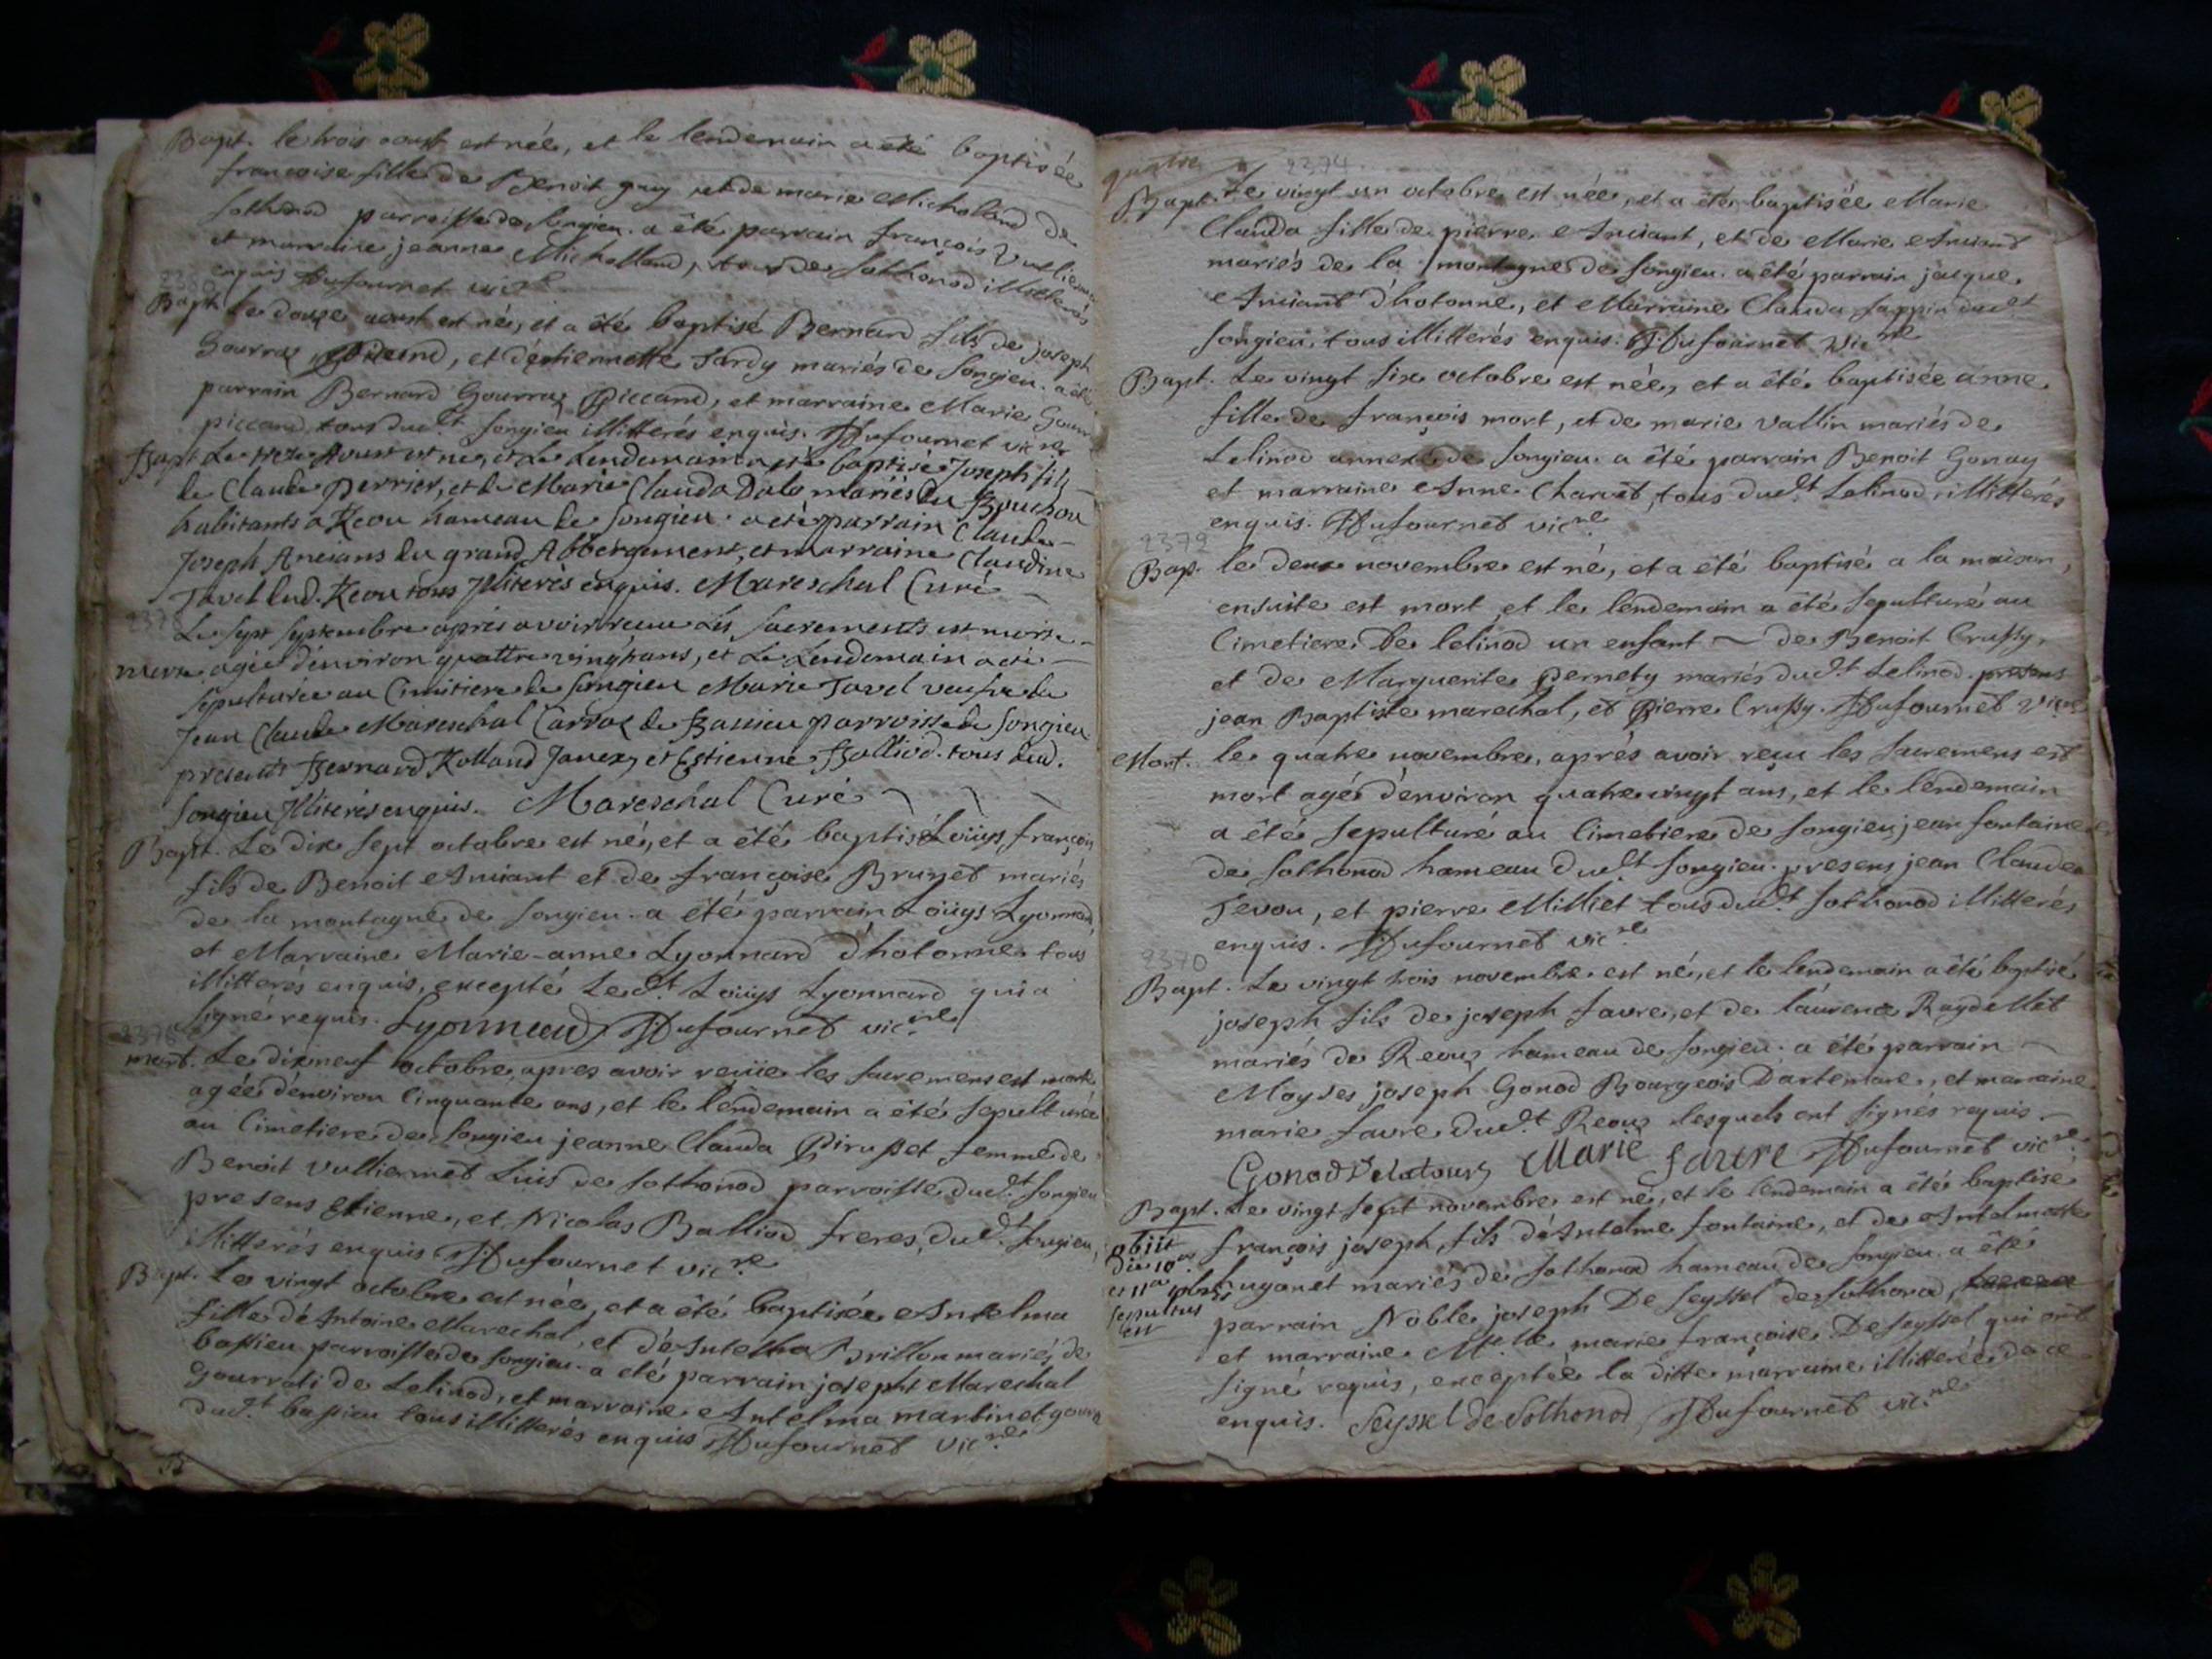 Bapt. le trois aoust est née, et le lendemain a été baptisée
francoise fille de Benoit guy et de marie Michalland de
sothonod parroisse de songieu. a été parrain françois Vulliermet
et marraine jeanne Michalland, tous de sothonod illitterés
enquis Dufournet vic.re
2380
Bapt. le douze aoust est né, et a été baptisé Bernard fils de joseph
Gourraz Piccand, et d'étiennette Tardy mariés de songieu. a été
parrain Bernard Gourraz Piccand, et marraine Marie Gourr
piccand tous dud.t songieu illitterés enquis. Dufournet vic.re
Bapt. Le treze Aoust est né, et Le Lendemain a eté baptisé Joseph fils
de Claude Perrier, et de Marie Clauda Dalo mariés du Bouchou
habitants a Reou hameau de songieu. a eté parrain Claude
Joseph Ancians du grand Abbergement, et marraine Claudine
Tavel dud. Reou tous Illiterés enquis. Mareschal Curé
2378
Le sept septembre aprés avoir receu Les sacrements est morte
morte agée d'environ quattre vingt ans, et Le Lendemain a eté
sepulturée au Cimitiere de songieu Marie Tavel veufve de
Jean Claude Mareschal Carraz de Bassieu parroisse de songieu
presents Bernard Rolland Janex, et Estienne Balliod. tous dud.
songieu Illiterés enquis. Mareschal Curé
Bapt. Le dix sept octobre est né, et a été baptisé Loüys françois
fils de Benoit Anciant et de françoise Brunet mariés
de la montagne de songieu. a été parrain Loüys Lyonnard,
et Marraine Marie-anne Lyonnard d'hotonne tous
illitterés enquis, excepté Led.t Loüys Lyonnard qui a
signé requis. Lyonnard Dufournet vic.re
2376
mort. Le dixneuf octobre, apres avoir reçüe les sacremens est morte
agée d'environ Cinquante ans, et le lendemain a été sepulturée
au Cimetiere de songieu jeanne Clauda Pirusset femme de
Benoit Vulliermet Luis de sothonod parroisse dud.t songieu
presens Etienne, et Nicolas Balliod freres, dud.t songieu,
illitterés enquis Dufournet vic.re
Bapt. Le vingt octobre est née, et a été baptisée Antelma
fille d'Antoine Marechal, et d'Antelma Brillon mariés de
bassieu parroisse de songieu. a été parrain joseph Marechal
gourrati de Lelinod, et marraine Antelma martinet gourr
dud.t bassieu tous illitterés enquis Dufournet vic.re
quatre 2374
Bapt. Le vingt un octobre est née, et a été baptisée Marie
Clauda fille de pierre Anciant, et de Marie Anciant
mariés de la montagne de songieu. a été parrain jacque
Anciant d'hotonne, et Marraine Clauda sappin dud.t
songieu, tous illitterés enquis. Dufournet vic.re
Bapt. Le vingt six octobre est née, et a été baptisée anne
fille de françois mort, et de marie vallin mariés de
Lelinod annexe de songieu. a été parrain Benoit Gonay
et marraine Anne Charvet, tous dud.t Lelinod, illitterés
enquis. Dufournet vic.re
2372
Bap. le deux novembre est né, et a été baptisé a la maison,
ensuite est mort et le lendemain a été sepulturé au
Cimetiere de lelinod un enfant ~ de Benoit Crussy,
et de Marguerite Pernety mariés dud.t Lelinod. presens
jean Baptiste marechal, et Pierre Crussy. Dufournet vic.re
Mort. le quatre novembre, aprés avoir reçu les sacremens est
mort agé d'environ quatre vingt ans, et le lendemain
a été sepulturé au Cimetiere de songieu jean fontaine
de sothonod hameau dud.t songieu. presens jean Claude
Tevou, et pierre Milliet tous dud.t sothonod illitterés
enquis. Dufournet vic.re
2370
Bapt. Le vingt trois novembre est né, et le lendemain a été baptisé
joseph fils de joseph favre, et de laurence Raydellet
mariés de Reoux hameau de songieu. a été parrain
Moyses joseph Gonod Bourgeois Dartemare, et marraine
marie favre dud.t Reoux lesquels ont signés requis.
Gonod Delatour Marie favre Dufournet vic.re
Bapt. Le vingt sept novembre, est né, et le lendemain a été baptisé
françois joseph, fils d'Antelme fontaine, et de Antelmette
obiit
die 10a
et 11a
sepultus
est
hugonet mariés de sothonod hameau de songieu. a été
parrain Noble joseph De seyssel de sothonod,
et marraine M.lle marie françoise De seyssel qui ont
signé requis, exceptée la ditte marraine illitterée de ce
enquis. Seyssel de Sothonod Dufournet vic.re